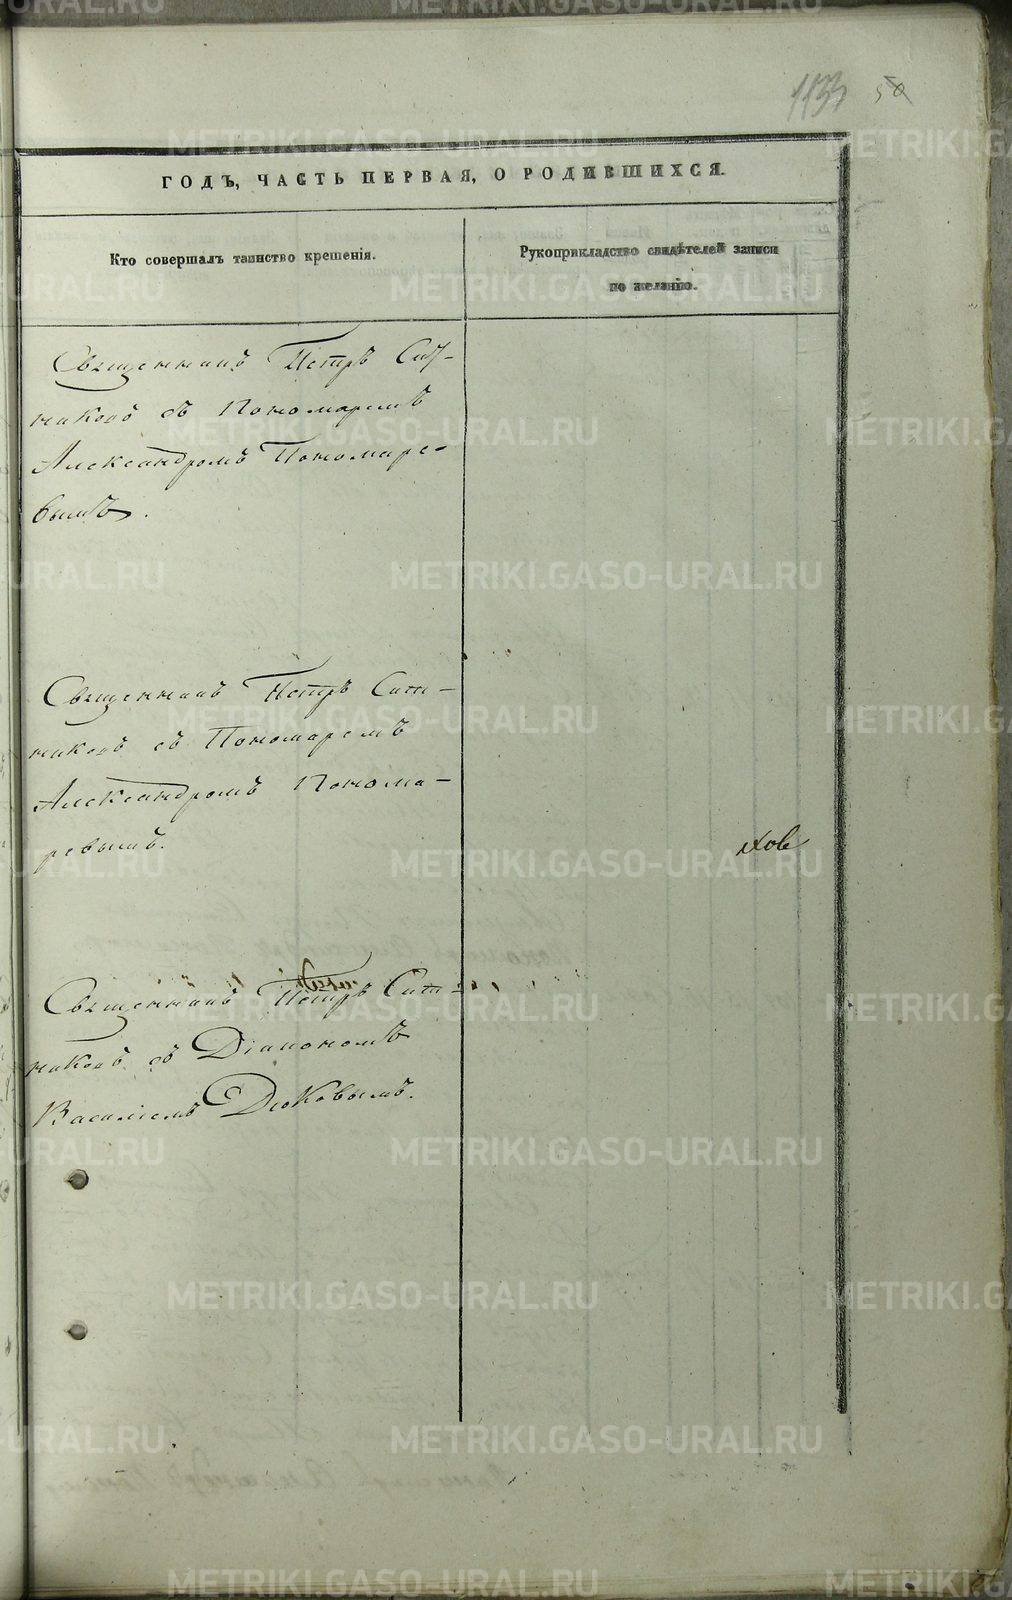 1133 50
ГОДЪ, ЧАСТЬ ПЕРВАЯ, О РОДИВШИХСЯ.
Кто совершалъ таинство крещенія.
Рукоприкладство свидѣтелей записи
по желанію.
Священникъ Петръ Сит-
никовъ съ Пономаремъ
Александромъ Пономаре-
вымъ.
Священникъ Петръ Сит-
никовъ съ Пономаремъ
Александромъ Понома-
ревымъ.
хов
Священникъ Петръ Сит-
никовъ съ Діакономъ
Василіемъ Дюковымъ.
METRIKI.GASO-URAL.RU